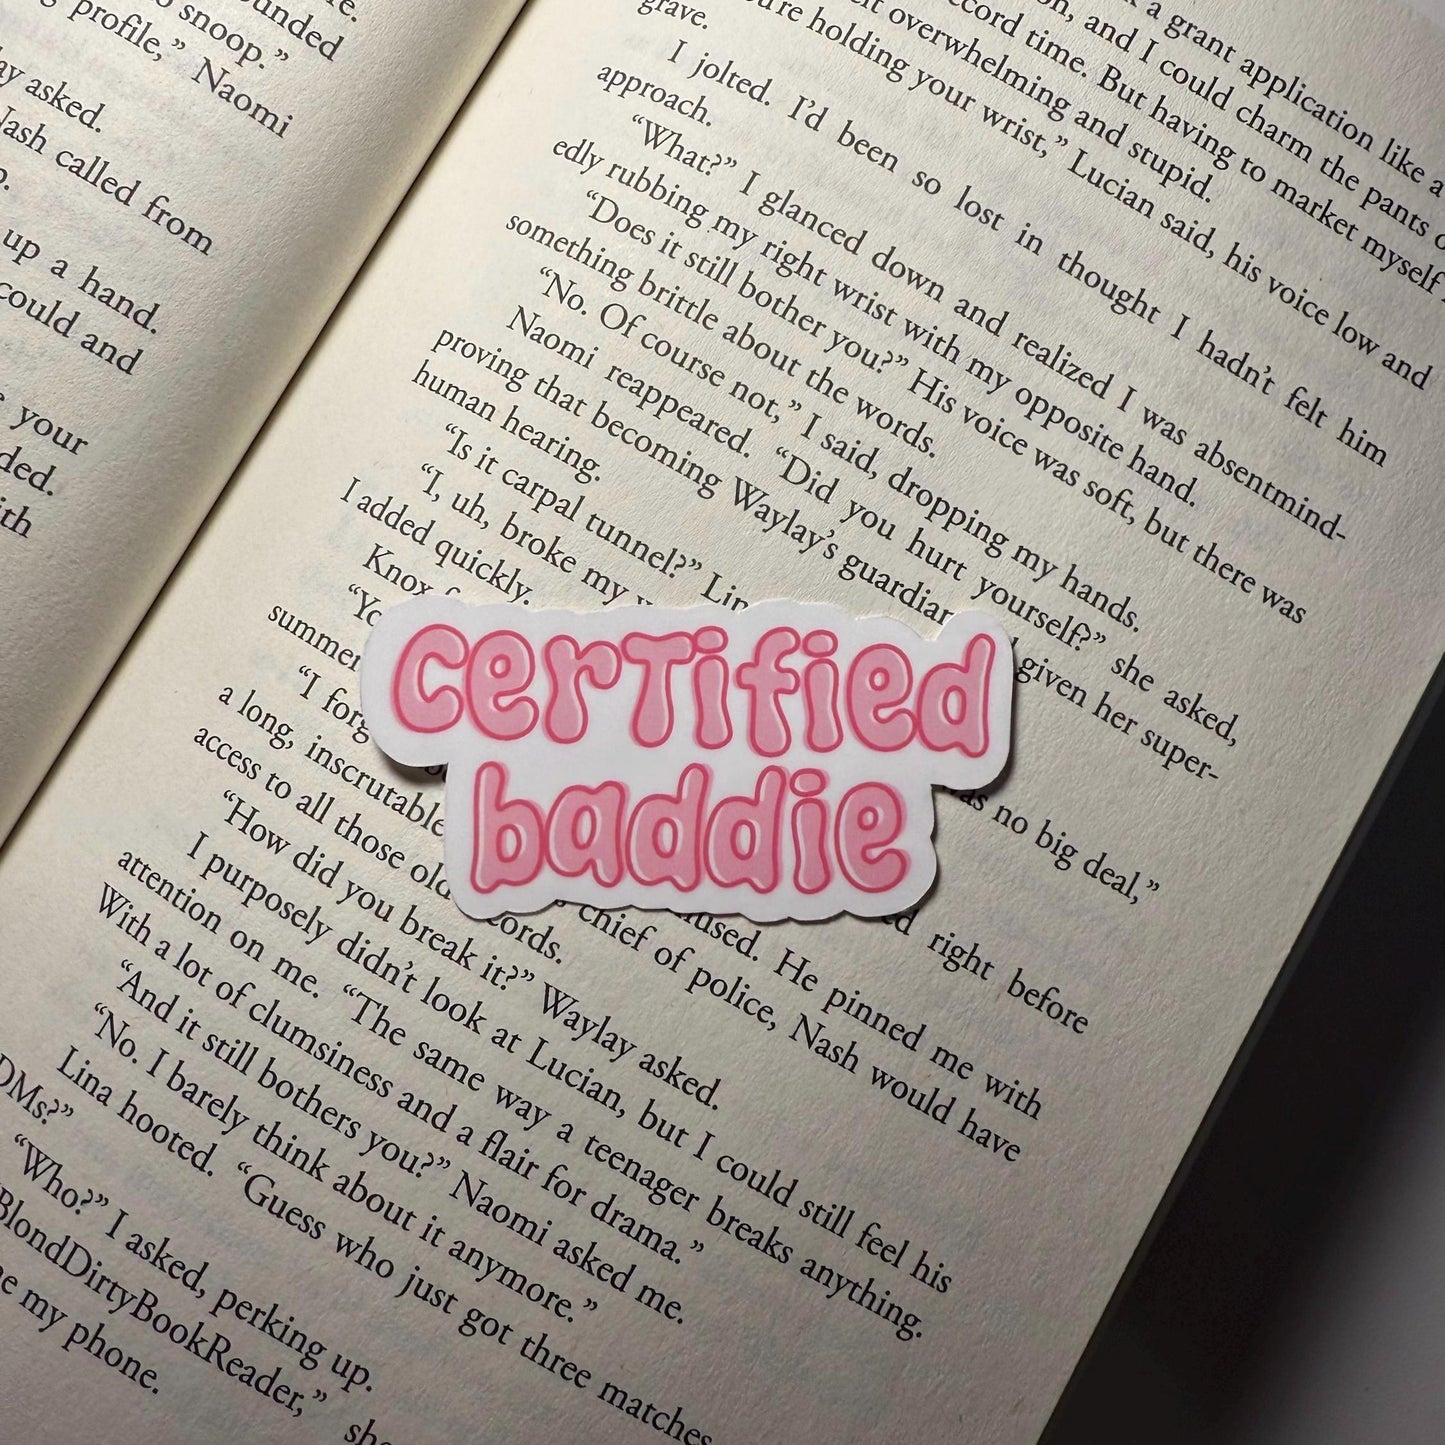 e.
ounded
o snoop.”
profile,” Naomi
ay asked.
Nash called from
up a hand.
could and
your
ded.
ith
a grant application like a
on, and I could charm the pants
ecord time. But having to market myself
elt overwhelming and stupid.
ou’re holding your wrist,” Lucian said, his voice low and
grave.
I jolted. I’d been so lost in thought I hadn’t felt him
approach.
“What?” I glanced down and realized I was absentmind-
edly rubbing my right wrist with my opposite hand.
“Does it still bother you?” His voice was soft, but there was
something brittle about the words.
“No. Of course not,” I said, dropping my hands.
Naomi reappeared. “Did you hurt yourself?” she asked,
proving that becoming Waylay’s guardian given her super-
human hearing.
“Is it carpal tunnel?” Lina
“I, uh, broke my was no big deal,”
I added quickly.
Knox
“Yo right before
summer
“I forg used. He pinned me with
a long, inscrutable chief of police, Nash would have
access to all those old records.
“How did you break it?” Waylay asked.
I purposely didn’t look at Lucian, but I could still feel his
attention on me. “The same way a teenager breaks anything.
With a lot of clumsiness and a flair for drama.”
“And it still bothers you?” Naomi asked me.
“No. I barely think about it anymore.”
Lina hooted. “Guess who just got three matches
DMs?”
“Who?” I asked, perking up.
BlondDirtyBookReader,” she
me my phone.
cerTified
baddie